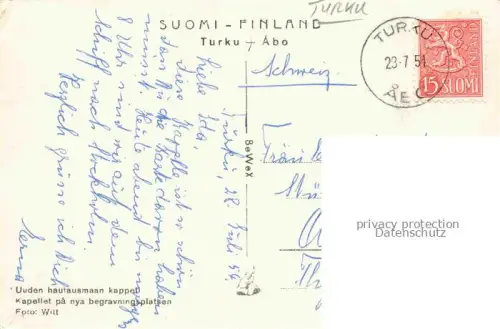 TURKU
SUOMI - FINLAND
Turku + Åbo
TURKU
23·7·51
ÅBO
15 SUOMI
Schweiz
Turku, 22. Juli 54.
Liebe Ida,
Diese Kapelle ist so schön
dass Du die Karte davon haben
musst. Heute abend bin morgen
8 Uhr sind wir auf dem
Schiff nach Stockholm
Herzlich grüsse ich Dich
BeWeX
Fräulein
privacy protection
Datenschutz
Uuden hautausmaan kappeli
Kapellet på nya begravningsplatsen
Foto: Witt